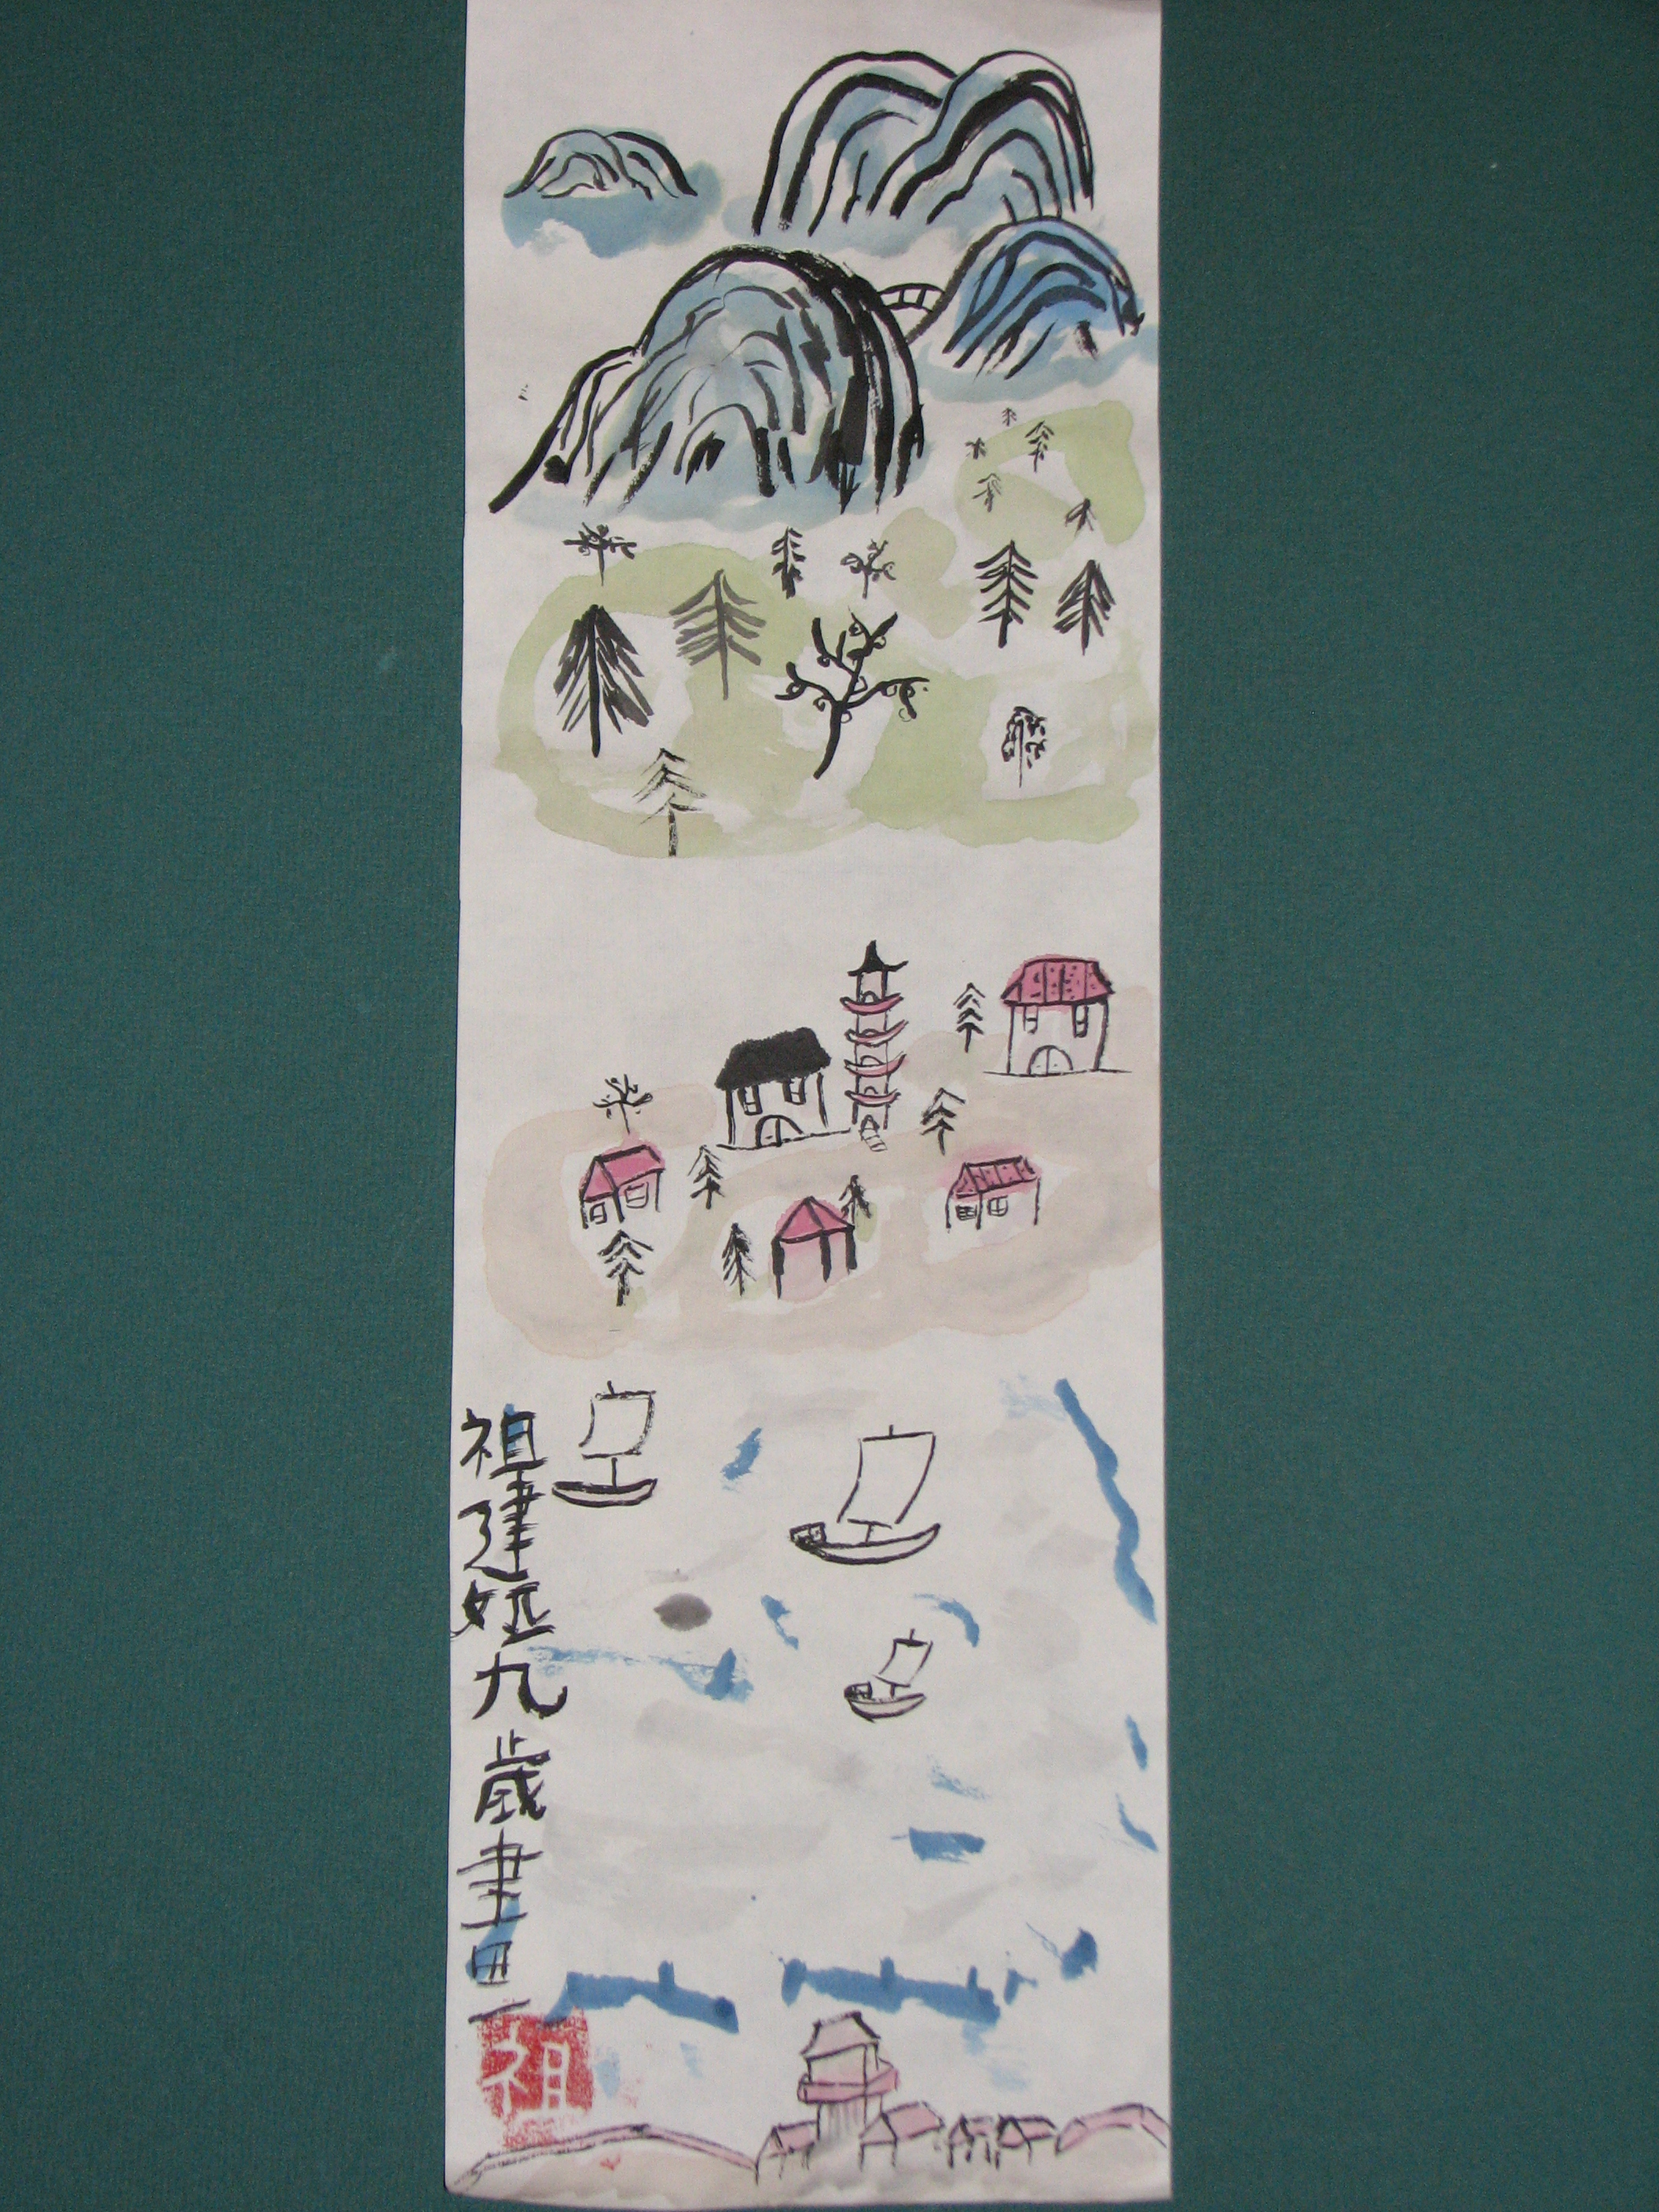 祖建娅九歲畫
祖